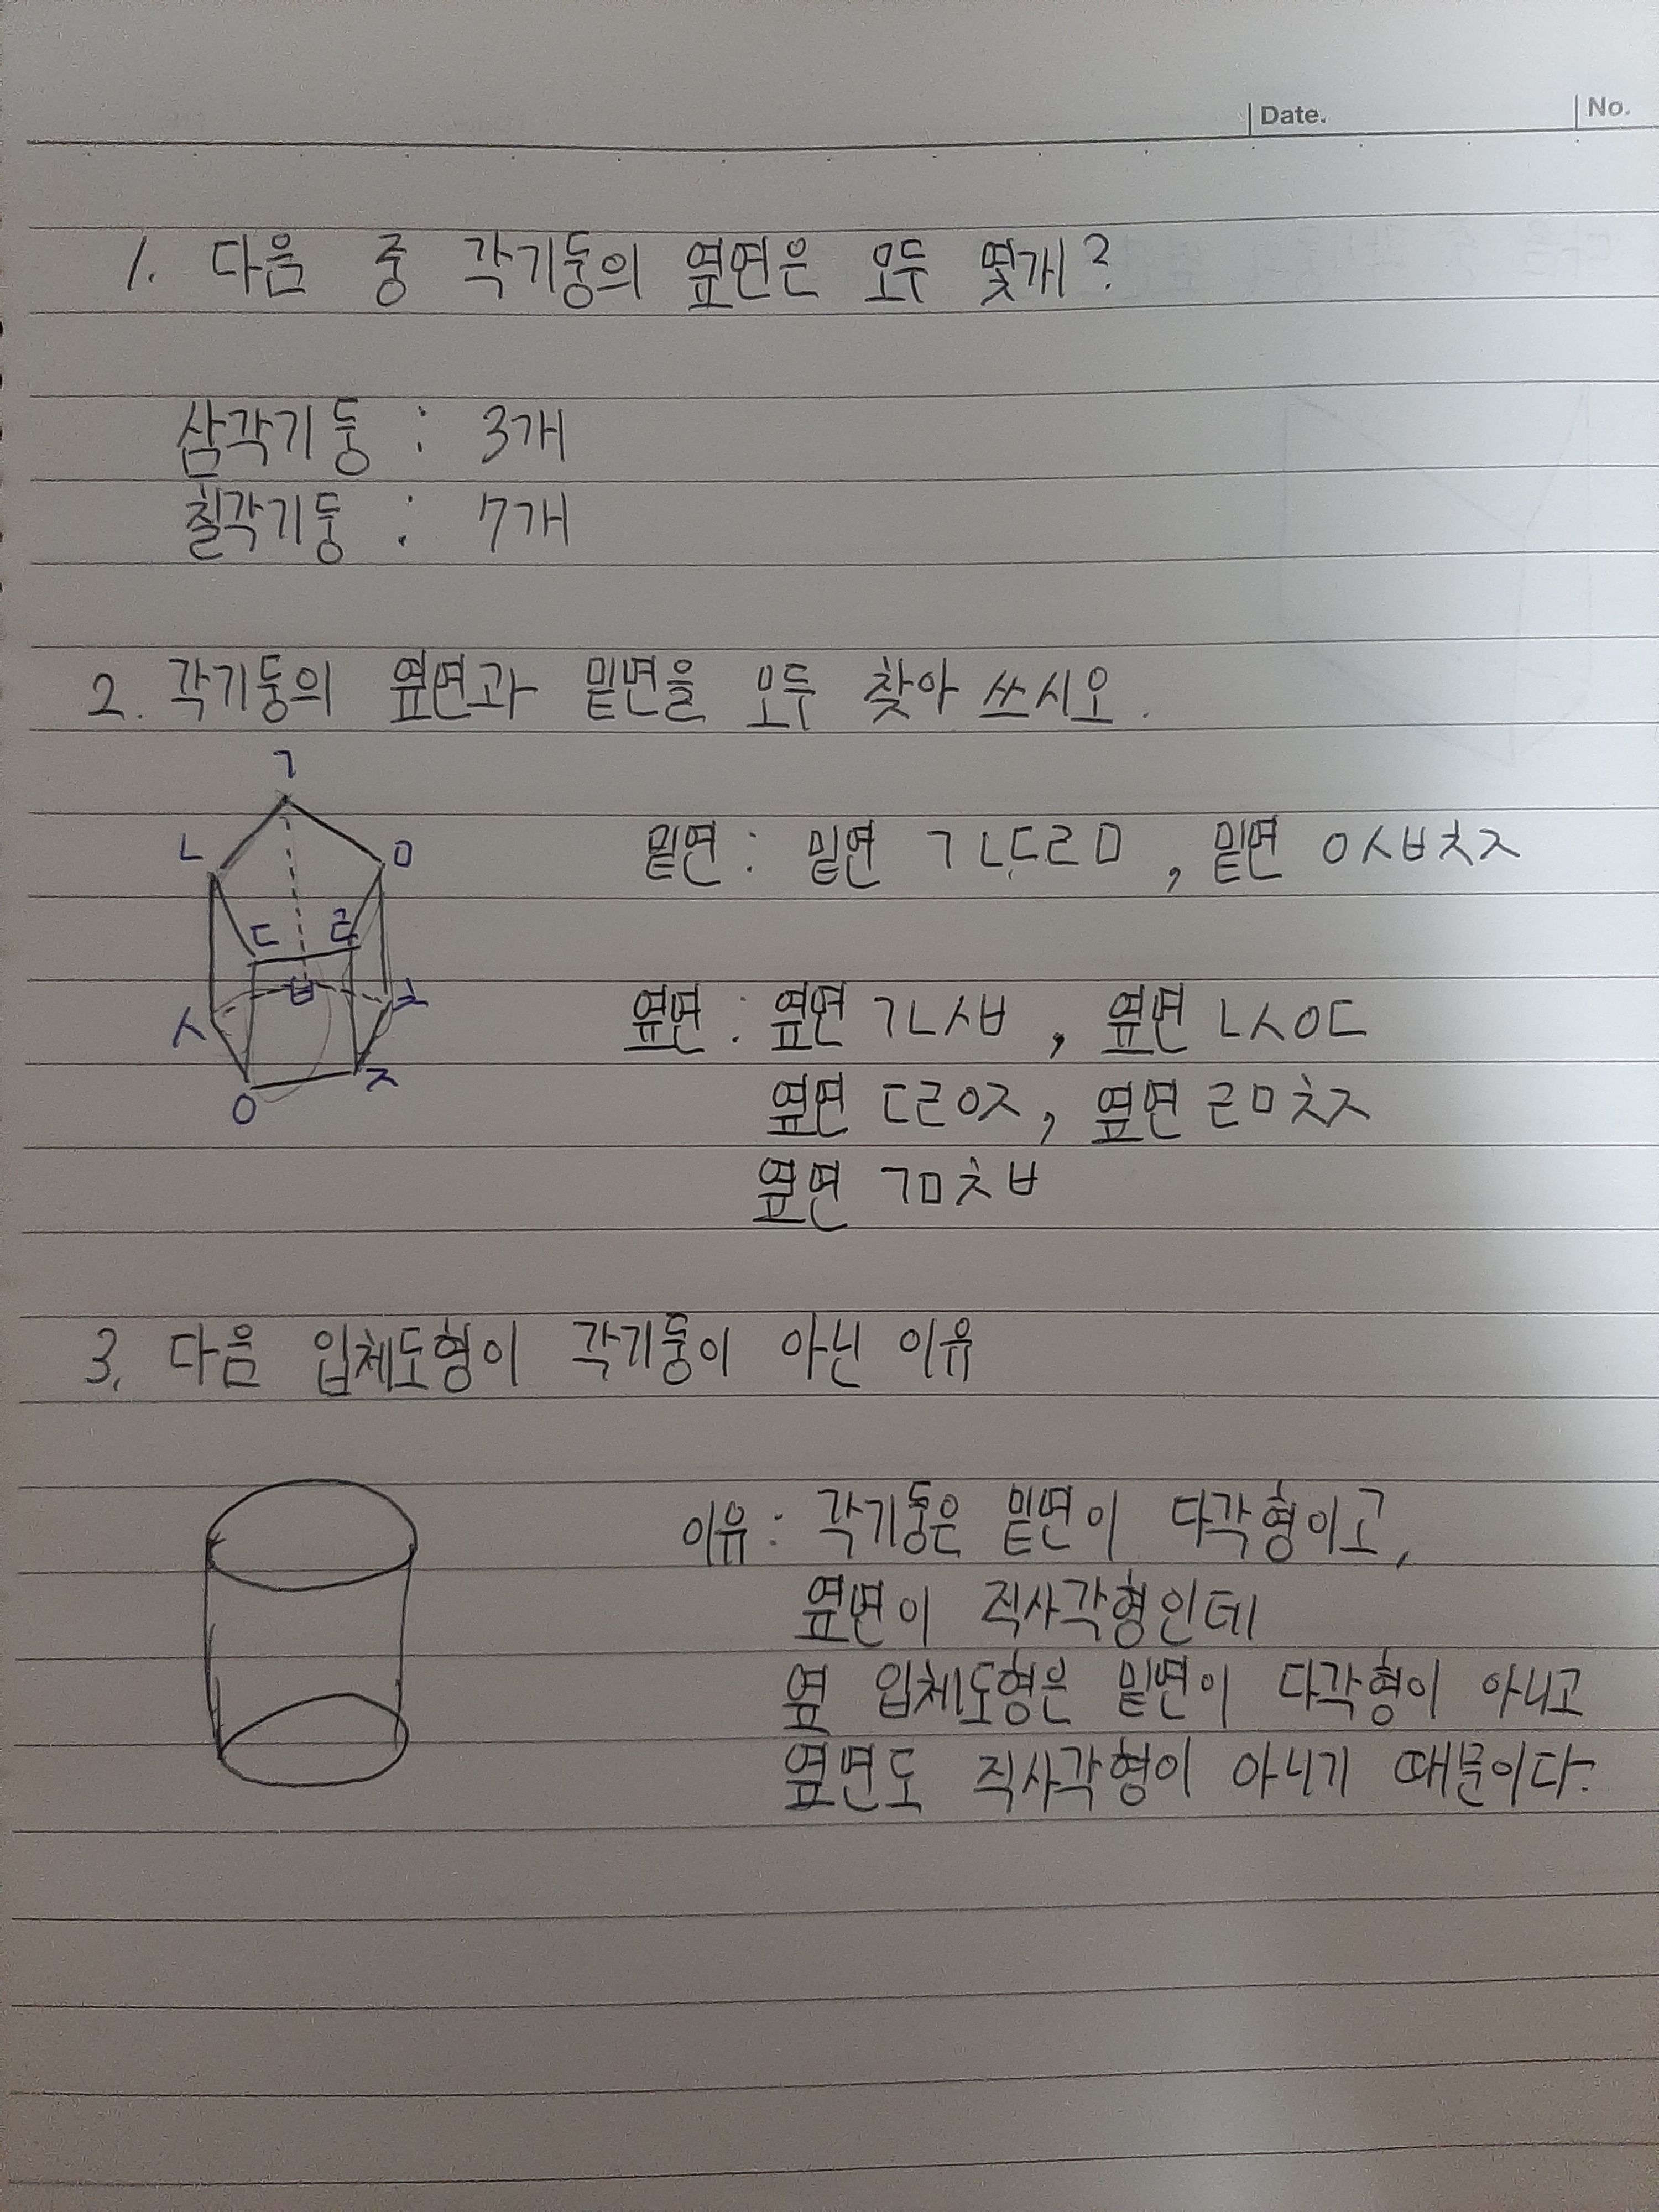 Date.
No.
1. 다음 중 각기둥의 옆면은 모두 몇개?
삼각기둥 : 3개
칠각기둥 : 7개
2. 각기둥의 옆면과 밑면을 모두 찾아 쓰시오.
ㄱ
ㄴ ㅁ
ㄷ ㄹ
ㅂ
ㅅ ㅊ
ㅇ ㅈ
밑면 : 밑면 ㄱㄴㄷㄹㅁ , 밑면 ㅇㅅㅂㅊㅈ
옆면 : 옆면 ㄱㄴㅅㅂ , 옆면 ㄴㅅㅇㄷ
옆면 ㄷㄹㅇㅈ , 옆면 ㄹㅁㅊㅈ
옆면 ㄱㅁㅊㅂ
3. 다음 입체도형이 각기둥이 아닌 이유
이유 : 각기둥은 밑면이 다각형이고,
옆면이 직사각형인데
옆 입체도형은 밑면이 다각형이 아니고
옆면도 직사각형이 아니기 때문이다.